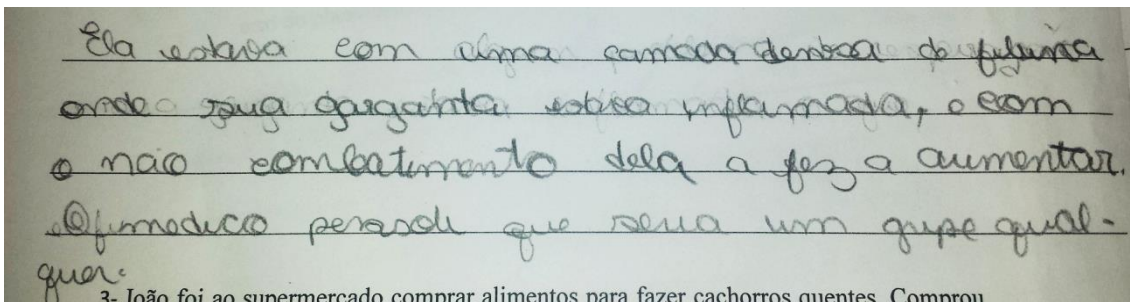 Ela estava com uma camada dentro do
onde sua garganta estava inflamada, e com
o não combatimento dela a fez a aumentar.
O medico pensou que seria um gripe qual-
quer.
3- João foi ao supermercado comprar alimentos para fazer cachorros quentes. Comprou